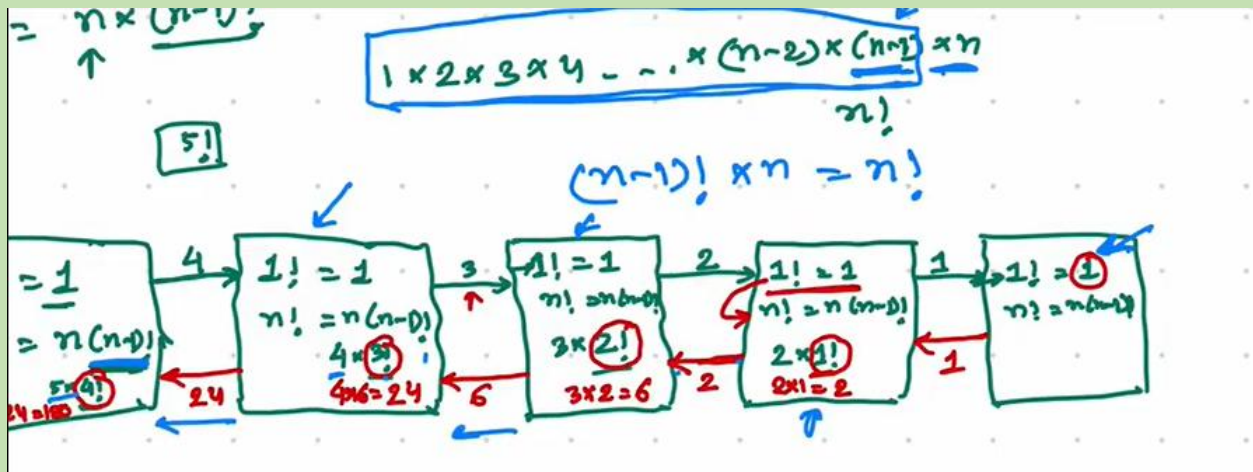 = n × (n-1)!
1 × 2 × 3 × 4 - - . . × (n-2) × (n-1) × n
n!
5!
(n-1)! × n = n!
= 1
= n(n-1)!
5×4!
24=120
4
24
1! = 1
n! = n(n-1)!
4 × 3!
4×6=24
3
6
1! = 1
n! = n(n-1)!
3 × 2!
3×2=6
2
2
1! = 1
n! = n(n-1)!
2 × 1!
2×1=2
1
1
1! = 1
n! = n(n-1)!